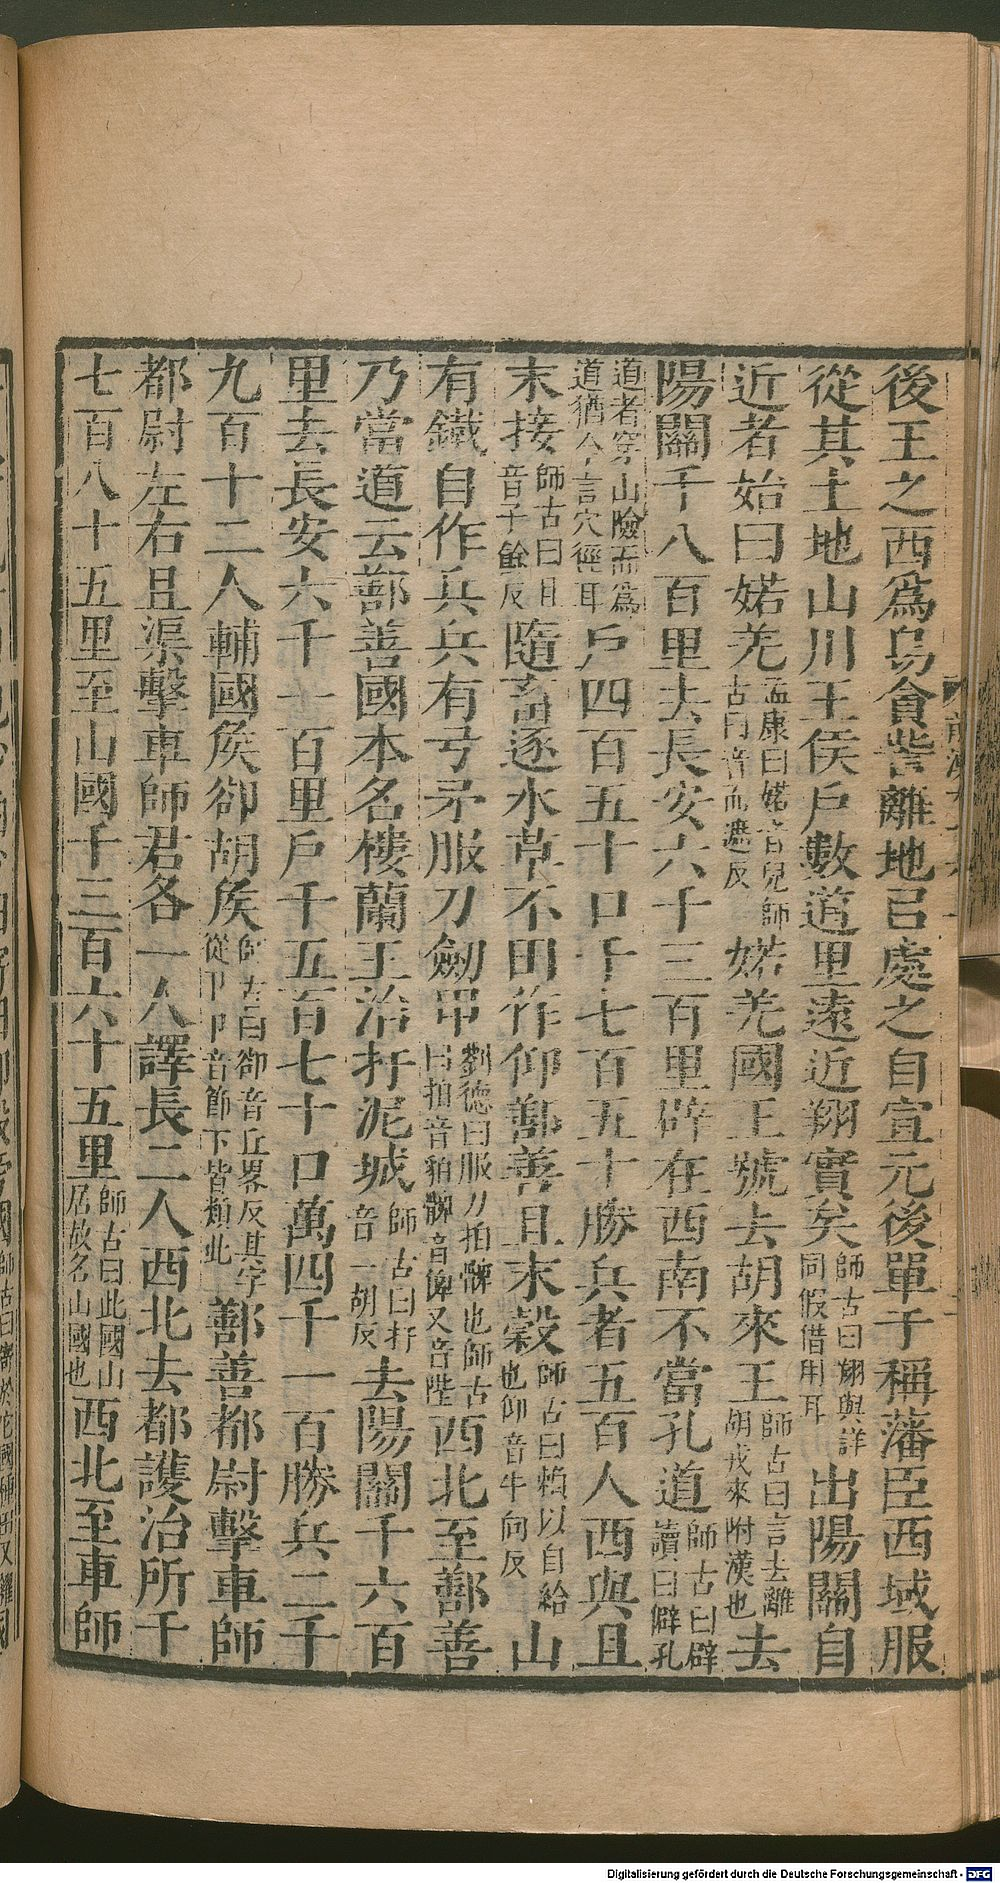 後王之西爲烏貪訾離地㠯處之自宣元後單于稱藩臣西域服
從其土地山川王侯戶數道里遠近翔實矣師古曰翔與詳同假借用耳出陽關自
近者始曰婼羌孟康曰婼音兒師古曰音而遮反婼羌國王號去胡來王師古曰言去離胡戎來附漢也去
陽關千八百里去長安六千三百里辟在西南不當孔道師古曰辟讀曰僻孔
道者穿山險而爲道猶今言穴徑耳戶四百五十口千七百五十勝兵者五百人西與且
末接師古曰且音子餘反隨畜逐水草不田作仰鄯善且末穀師古曰賴以自給也仰音牛向反山
有鐵自作兵兵有弓矛服刀劒甲劉德曰服刀拍髀也師古曰拍音貊髀音俾又音陛西北至鄯善
乃當道云鄯善國本名樓蘭王治扜泥城師古曰扜音一胡反去陽關千六百
里去長安六千一百里戶千五百七十口萬四千一百勝兵二千
九百十二人輔國矦卻胡矦師古曰卻音丘畧反其字從卩卩音節下皆類此鄯善都尉擊車師
都尉左右且渠擊車師君各一人譯長二人西北去都護治所千
七百八十五里至山國千三百六十五里師古曰此國山居故名山國也西北至車師
Digitalisierung gefördert durch die Deutsche Forschungsgemeinschaft - DFG